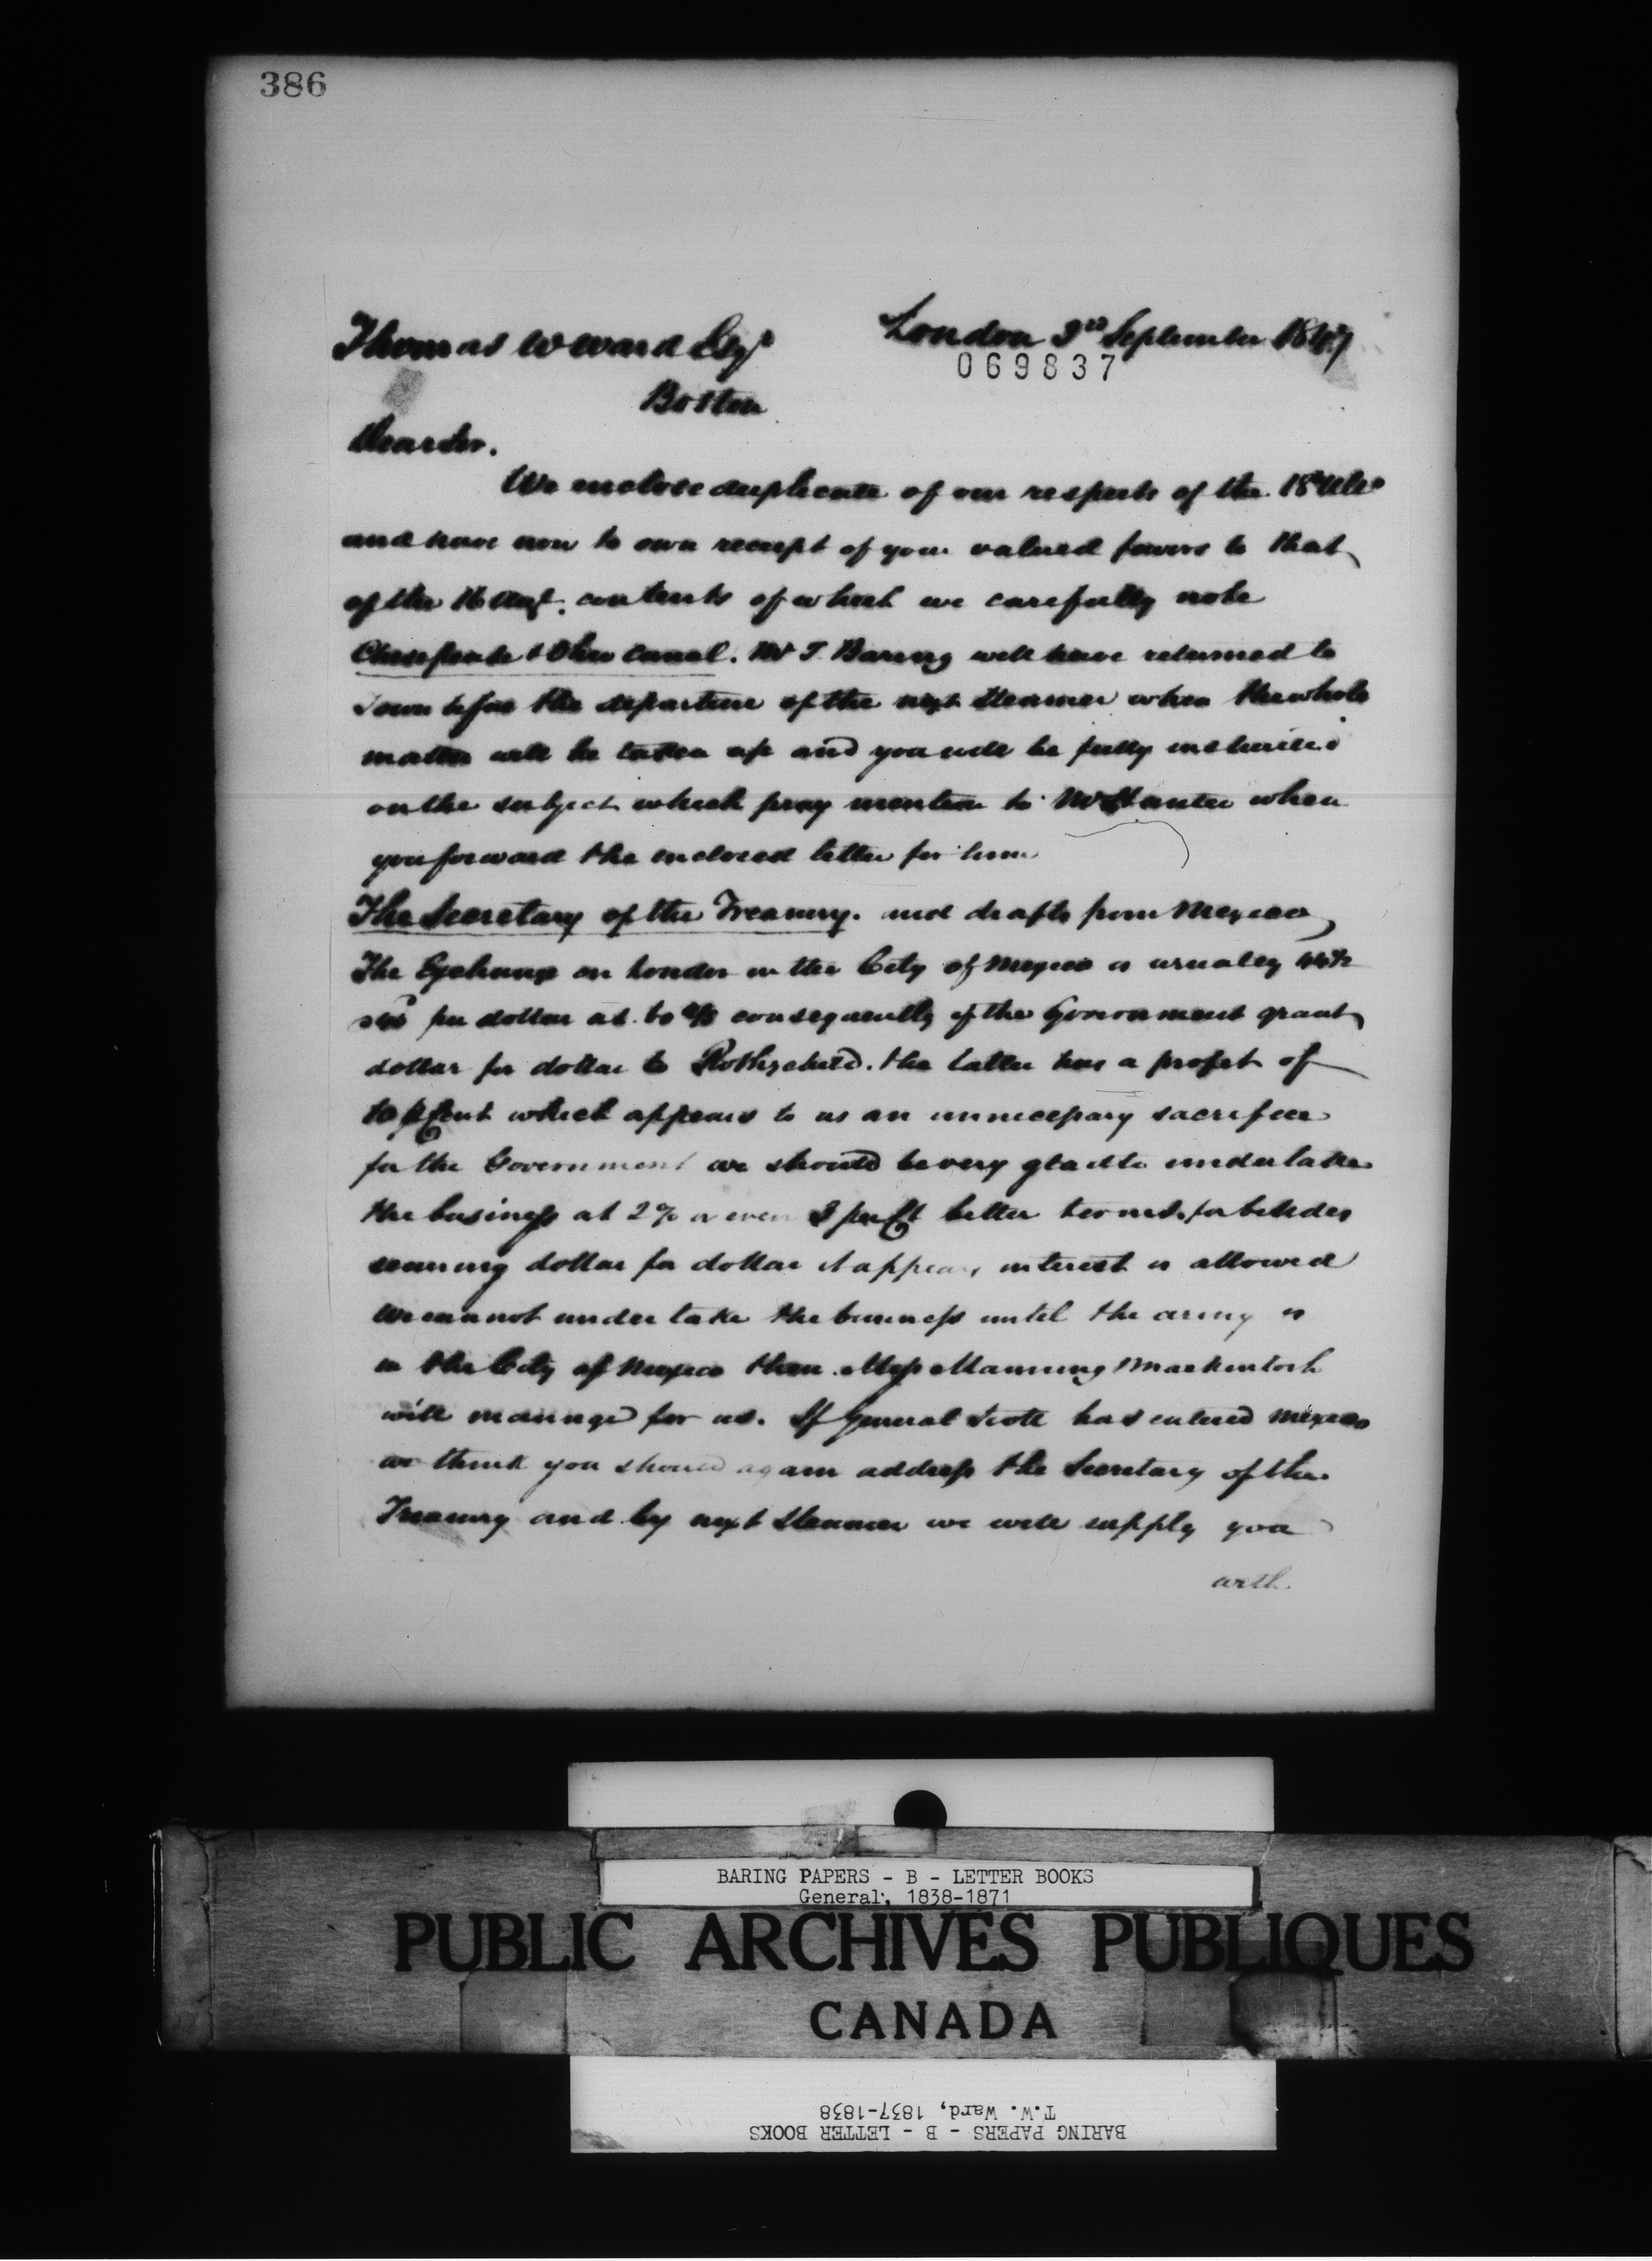 386
Thomas W Ward Esqr London 3rd September 1847
069837
Boston
Dear Sir.
We enclose duplicate of our respects of the 18 Ulto
and have now to own receipt of your valued favors to that
of the 16 Augt. contents of which we carefully note
Chesapeake & Ohio Canal. Mr T. Baring will have returned to
Town before the departure of the next Steamer when the whole
matter will be taken up and you will be fully instructed
on the subject which pray mention to Mr when
you forward the enclosed letter for him
The Secretary of the Treasury. and drafts from Mexico
The Exchange on London in the City of Mexico is usually
per dollar at 60 d/s consequently if the Government grant
dollar for dollar to Rothschild. the latter has a profit of
10 p Cent which appears to us an unnecessary sacrifice
for the Government we should be very glad to undertake
the business at 2% or even 3 per Ct better terms, for besides
dollar for dollar it appears interest is allowed
We cannot undertake the business until the army is
in the City of Mexico then Mess Manning Mackintosh
will manage for us. If General Scott has entered Mexico
we think you should again address the Secretary of the
Treasury and by next Steamer we will supply you
with.
BARING PAPERS - B - LETTER BOOKS
General, 1838-1871
PUBLIC ARCHIVES PUBLIQUES
CANADA
BARING PAPERS - B - LETTER BOOKS
T.W. Ward, 1837-1838